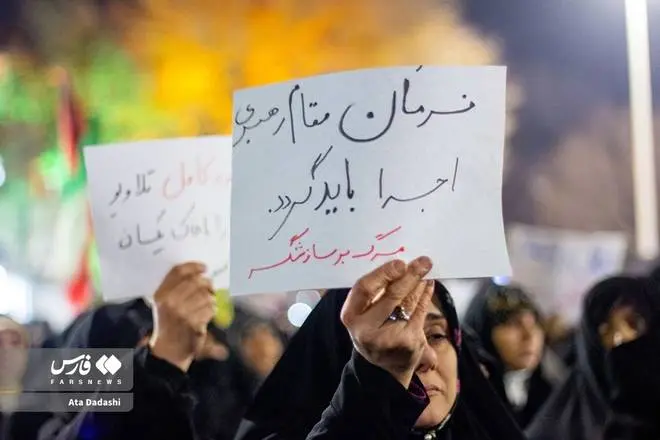 فرمان مقام رهبری
اجرا باید گردد.
مرگ بر سازشگر
کامل تلاویو
را خاک یکسان
فارس
FARSNEWS
Ata Dadashi